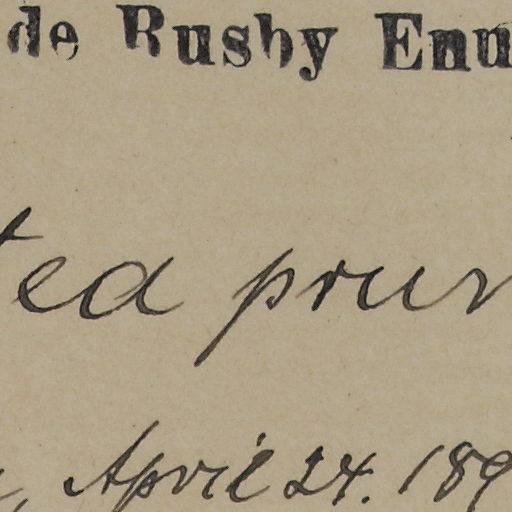 de Rusby Enu
ted prun
, April 24. 189